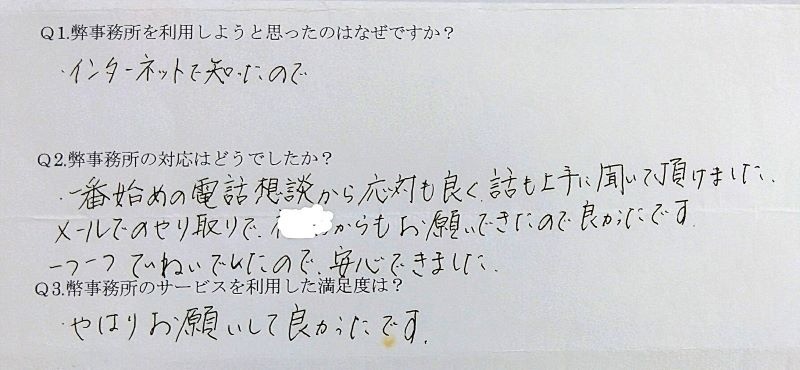 Q1.弊事務所を利用しようと思ったのはなぜですか？
・インターネットで知ったので
Q2.弊事務所の対応はどうでしたか？
・一番始めの電話想談から応対も良く、話も上手に聞いて頂けました。
メールでのやり取りで、からもお願いできたので良かったです。
一つ一つていねいでしたので、安心できました。
Q3.幣事務所のサービスを利用した満足度は？
・やはりお願いして良かったです。